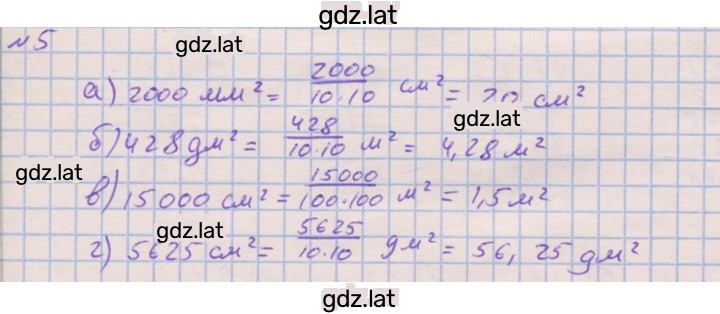 gdz.lat
№5
gdz.lat
а) 2000 мм² = 2000/10·10 см² = 20 см²
gdz.lat
б) 428 дм² = 428/10·10 м² = 4,28 м²
gdz.lat
в) 15000 см² = 15000/100·100 м² = 1,5 м²
gdz.lat
г) 5625 см² = 5625/10·10 дм² = 56,25 дм²
gdz.lat